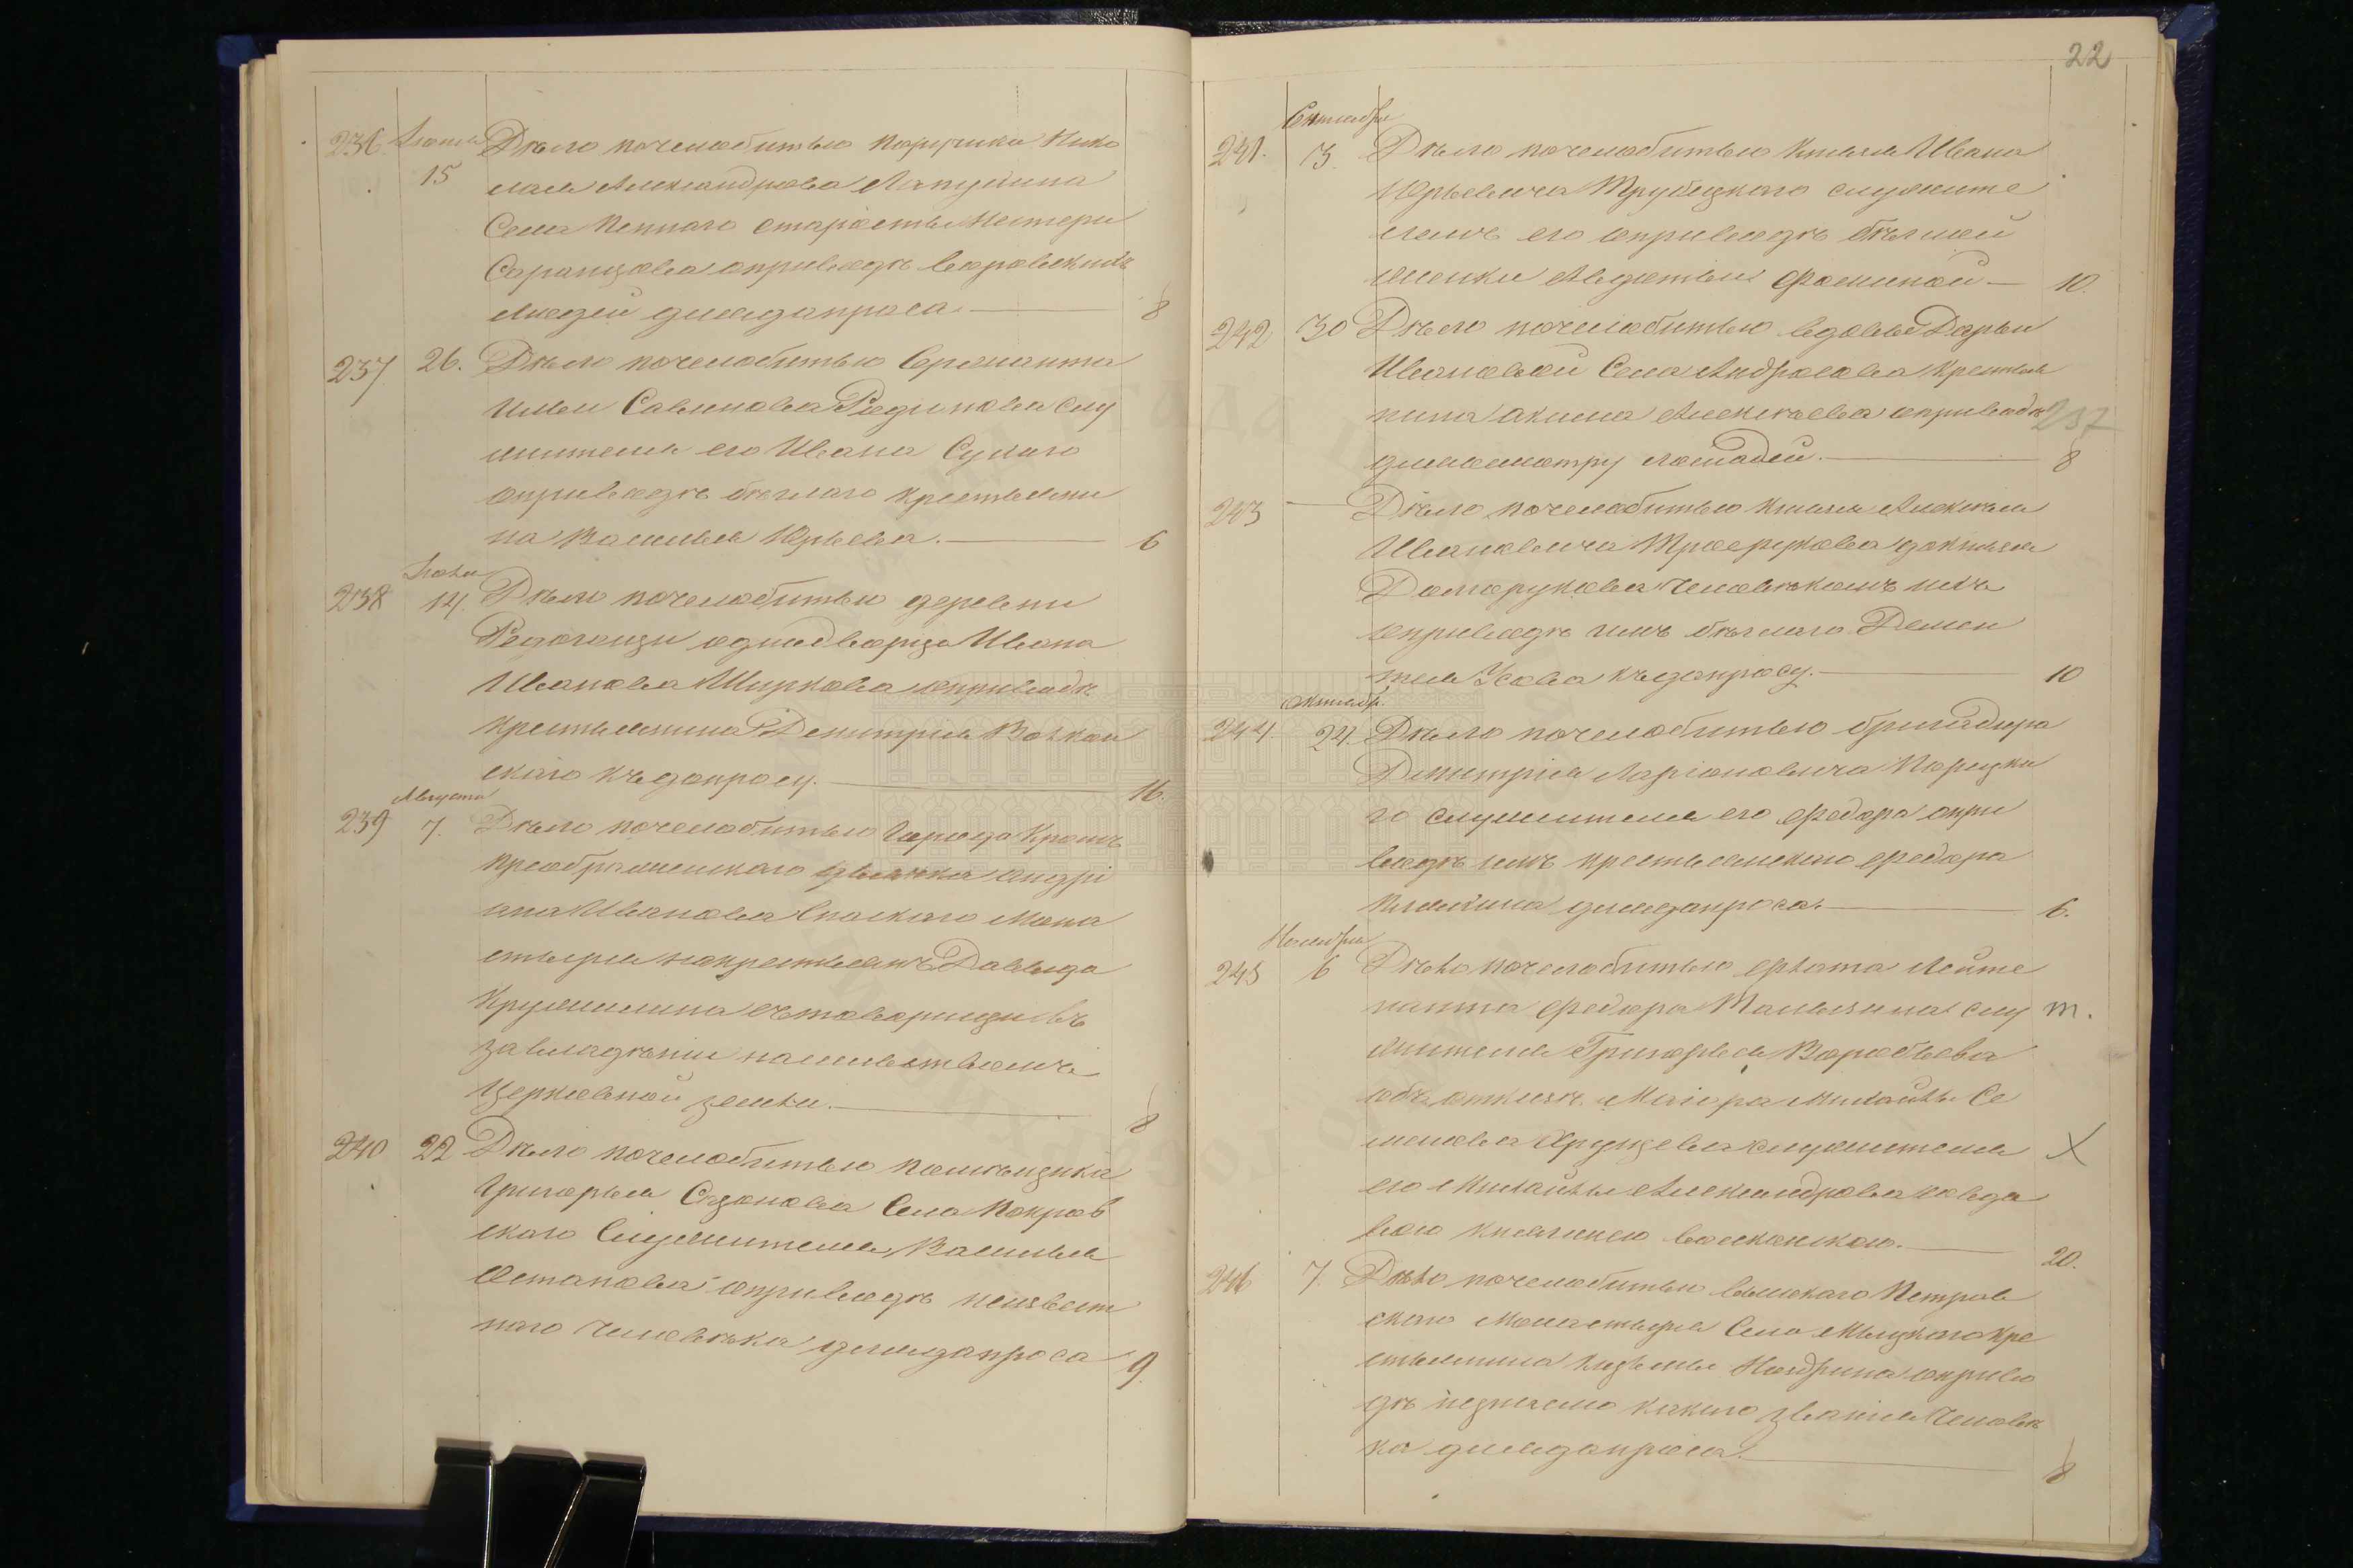 236. Июня Дѣло почелобитью порутчика Нико
15 лая Александрова Лапухина
Села старосты Нестера
Саранцова оприводѣ воровскихъ
людей длядопроса 8
237 26. Дѣло почелобитью Сержанта
Савинова Родионова слу
жителя его Ивана Сухаго
оприводѣ бѣглаго крестьяни
на Василья Юрьева. 6
Іюля
238 14. Дѣло почелобитью деревни
Редогощи однодворца Ивана
Иванова Ширкова оприводѣ
крестьянина Дмитрія
скаго къдопросу. 16.
Августа
239 7. Дѣло почелобитью города Кромъ
преображенскаго дьячка андрі
яна Иванова Спаскаго Мона
стыря накрестьянъ Давыда
съ товарищи въ
завладѣніи насильствомъ
церковной земли. 8
240 22 Дѣло почелобитью помѣщика
Григорья Сазонова Села Покров
скаго Служителя Василья
Остапова оприводѣ неизвест
наго человѣка длядопроса 9.
22
Сентября
241. 3. Дѣло почелобитью Князя Ивана
Юрьевича Трубецкаго служите
лемъ его оприводѣ бѣглой
женки Авдотьи Фоминой 10.
242 30 Дѣло почелобитью вдовы Дарьи
Ивановой Села Андросова крестья
нина акима Алексѣева оприводѣ
237
дляосмотру лошадей. 8
243 Дѣло почелобитью Князя Алексѣя
Ивановича Троерукова
человѣкомъ ихъ
оприводѣ имъ бѣглаго Демен
тья Усова къдопросу. 10
Октябр.
244 24. Дѣло почелобитью бригадира
Дмитрія Ларіоновича Порецка
го служителя его Федора опри
водѣ имъ крестьянскаго Федора
длядопроса. 6.
Ноября
245 6 Дѣло почелобитью флота Лейте
нанта Федора слу т.
жителя Григорья Воробьева
объ Маіора Михайлы Се
менова Хрущева служителя X
его Михайлы Александрова
вою княгинею волконскою. 20.
246 7. Дѣло почелобитью Петров
скаго Монастыря Села кре
стьянина Кузьмы оприво
дѣ незнаемо какаго званія человѣ
ка длядопроса. 8